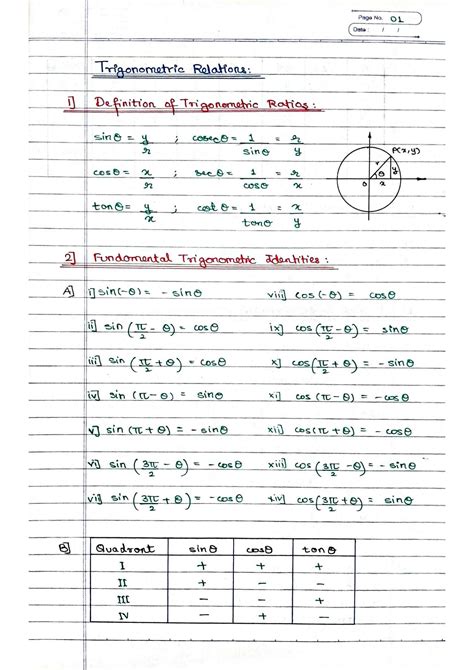 Page No. 01
Date : / /
Trigonometric Relations:
1] Definition of Trigonometric Ratios :
sinθ = y/r ; cosecθ = 1/sinθ = r/y
cosθ = x/r ; secθ = 1/cosθ = r/x
tanθ = y/x ; cotθ = 1/tanθ = x/y
P(x,y)
r
y
θ
O
x
2] Fundamental Trigonometric Identities :
A] i] sin(-θ) = - sinθ viii] cos(-θ) = cosθ
ii] sin (π/2 - θ) = cosθ ix] cos (π/2 - θ) = sinθ
iii] sin (π/2 + θ) = cosθ x] cos(π/2 + θ) = - sinθ
iv] sin (π - θ) = sinθ xi] cos (π - θ) = - cosθ
v] sin (π + θ) = - sinθ xii] cos(π + θ) = - cosθ
vi] sin (3π/2 - θ) = - cosθ xiii] cos (3π/2 - θ) = - sinθ
vii] sin (3π/2 + θ) = - cosθ xiv] cos(3π/2 + θ) = sinθ
B] Quadrant sinθ cosθ tanθ
I + + +
II + - -
III - - +
IV - + -